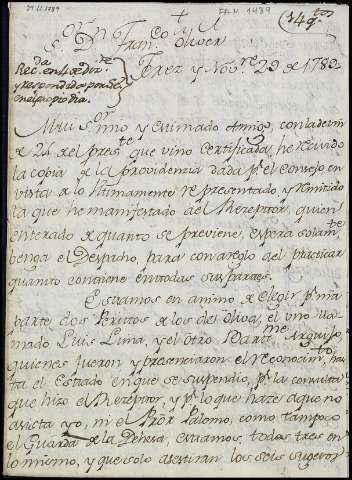 29.11.1789
FRM 1439
+
Sor Dn Franco Oliver
Xerez y Novre 29 de 1789
Muí Sor mío y estimado Amigo, con la de Vm
de 24 del preste que vino certificada, he recivido
la copia de la providencia dada pr el Consejo en
vista de lo ultimamente representado y remitido
la que he manifestado al Rezeptor, quien
enterado de quanto se previene, espera solamte
benga el Despacho, para con arreglo a el practicar
quanto contiene en todas sus partes.
Estamos en animo de elegir pr mi
parte dos Peritos de los de Oliva, el uno lla-
mado Luis Luna, y el otro Bartme
quienes fueron y presenciaron el reconocimto, has
ta el Estado en que se suspendio, pr la consulta
que hizo el Rezeptor, y pr lo que haze a que no
asista yo, ni el Palomo, como tampoco
el Guarda de la Dehesa, estamos todos tres en
lo mismo, y que solo asistiran los seis sugetos